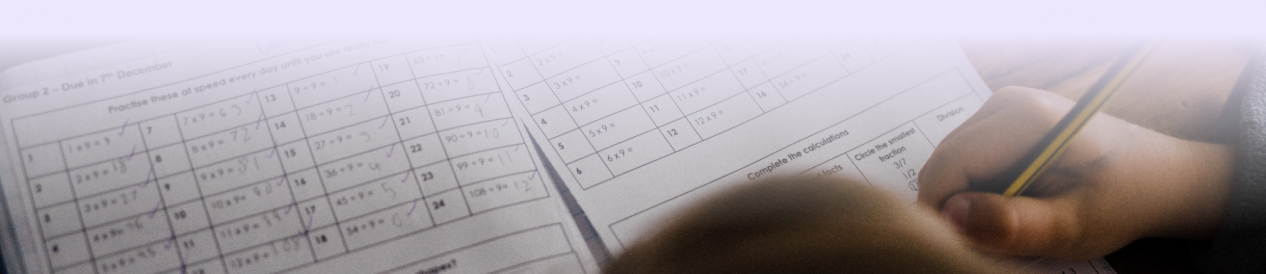 Group 2 – Due in 7th December
Practise these at speed every day until you are
1 1 x 9 = 9 7 7 x 9 = 63 13 9 ÷ 9 = 1 19
2 2 x 9 = 18 8 8 x 9 = 72 14 18 ÷ 9 = 2 20 72 ÷ 9 = 8
3 3 x 9 = 27 9 9 x 9 = 81 15 27 ÷ 9 = 3 21 81 ÷ 9 = 9
4 4 x 9 = 36 10 10 x 9 = 90 16 36 ÷ 9 = 4 22 90 ÷ 9 = 10
x 9 = 45 11 11 x 9 = 99 17 45 ÷ 9 = 5 23 99 ÷ 9 = 11
12 x 9 = 108 18 54 ÷ 9 = 6 24 108 ÷ 9 = 12
2 2 x 9 =
3 3 x 9 = 9
4 4 x 9 = 10 10 x 9 =
5 5 x 9 = 11 11 x 9 = 17
6 6 x 9 = 12 12 x 9 = 18 54 ÷ 9 =
Complete the calculations
facts
Circle the smallest
fraction
3/7
1/2
Division